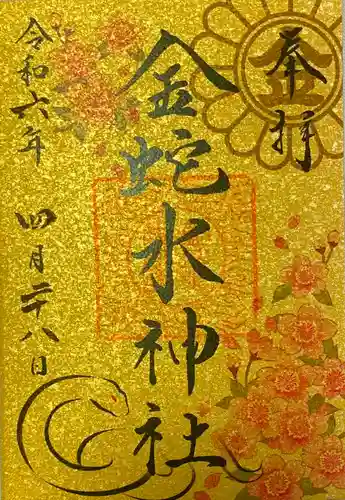 奉拝
金蛇水神社
令和六年 四月二十八日